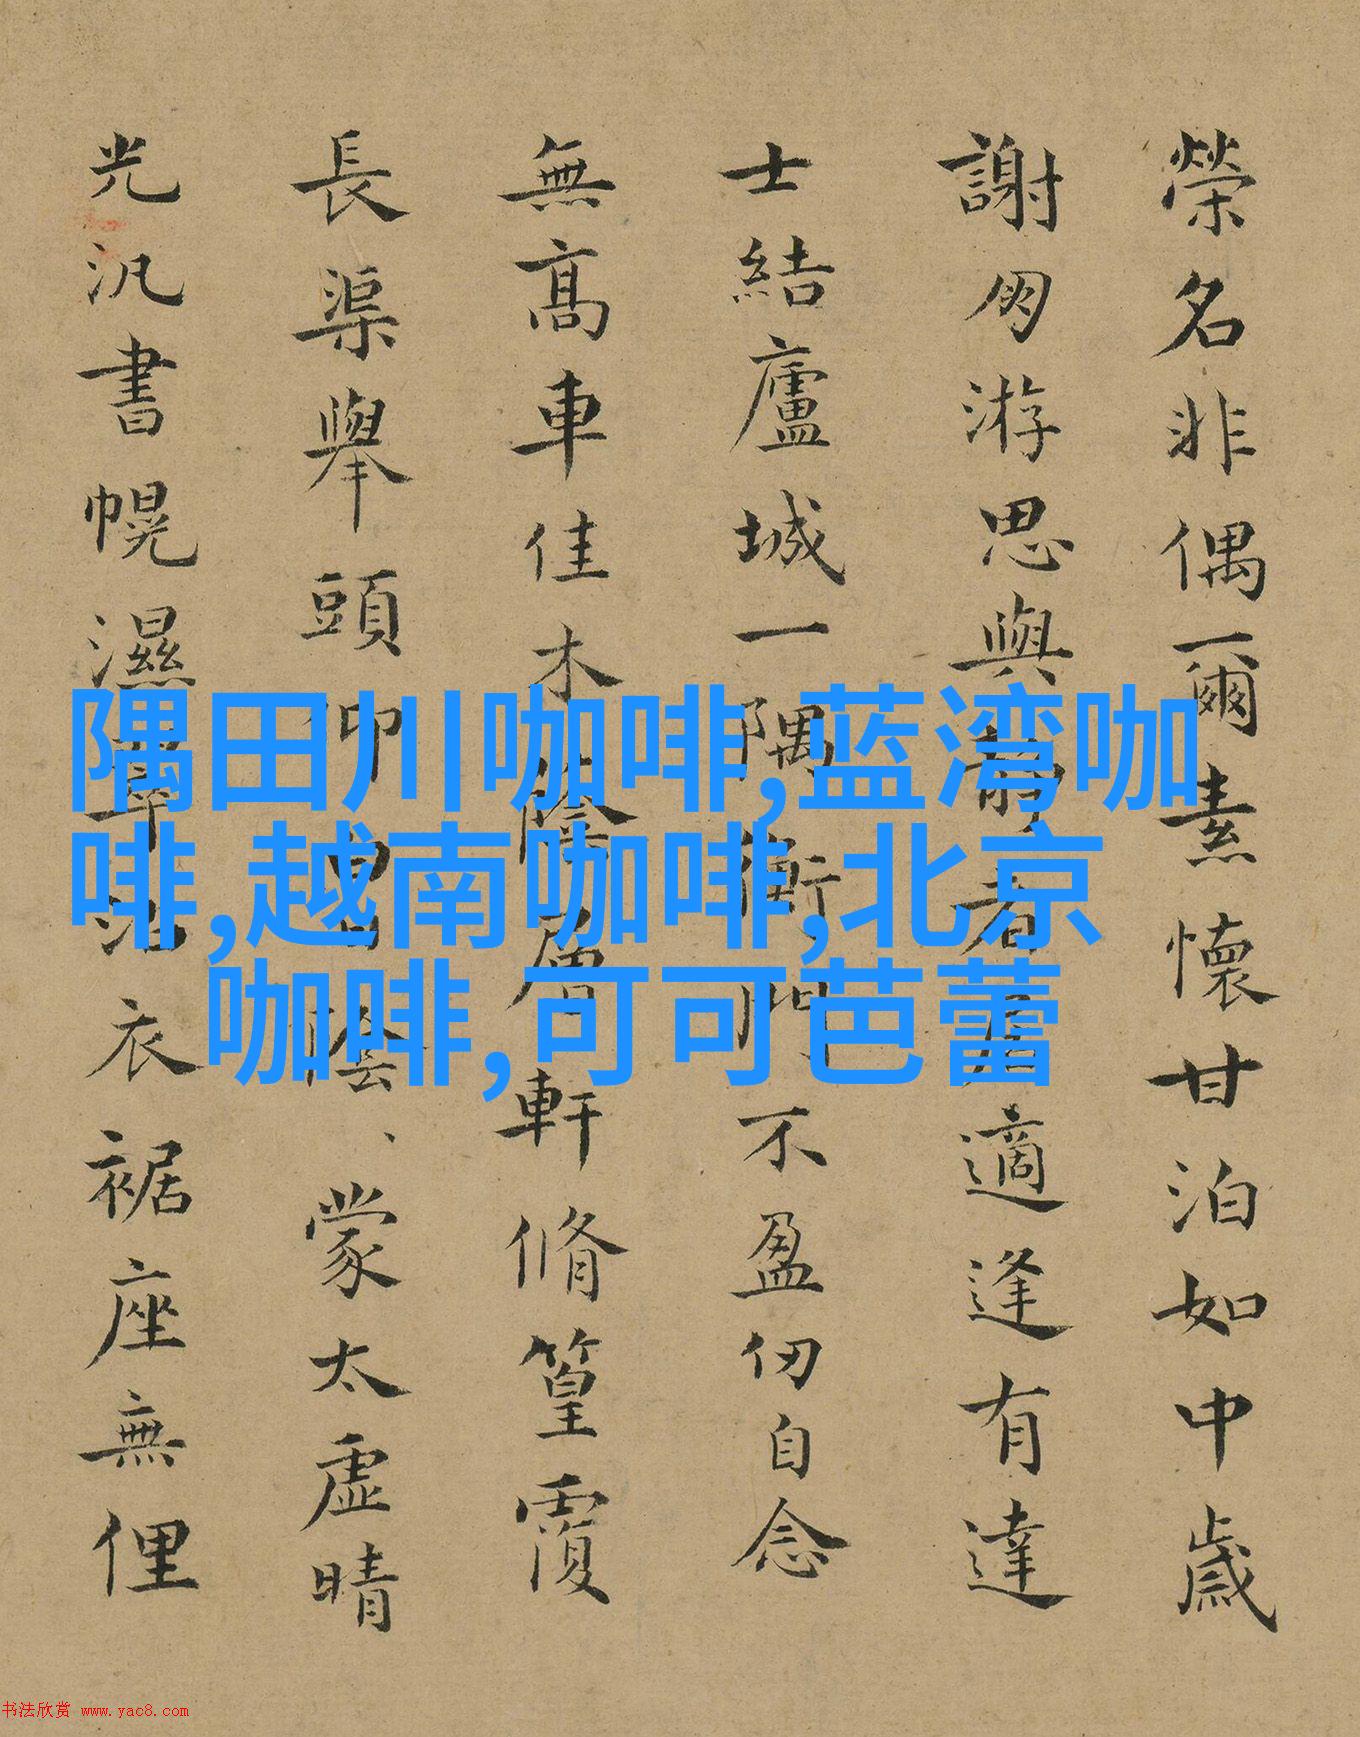 榮名非偶爾素懷甘泊如中歲
謝朋游思與靜者居適逢有達
士結廬城一隅衡門不盈仞自念
無高車佳木蔭層軒脩篁覆
長渠舉頭仰蒙太虛晴
光汎書幌濕翠沾衣裾座無俚
隅田川咖啡,蓝湾咖
啡,越南咖啡,北京
咖啡,可可芭蕾
书法欣赏 www.yac8.com